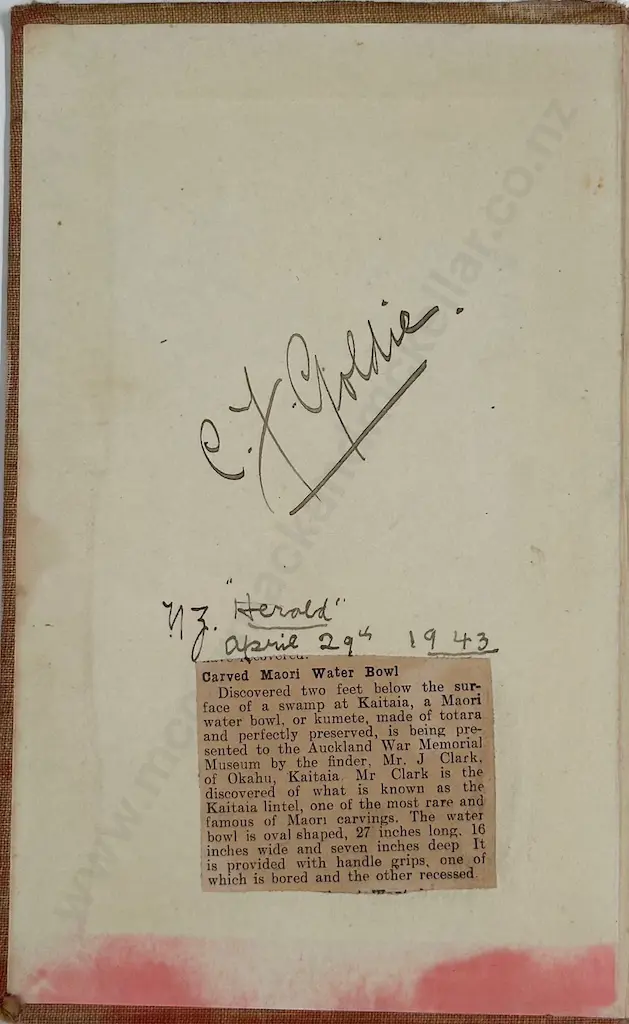 C. F. Goldie.
NZ. "Herald"
April 29th 1943
Carved Maori Water Bowl
Discovered two feet below the sur-
face of a swamp at Kaitaia, a Maori
water bowl, or kumete, made of totara
and perfectly preserved, is being pre-
sented to the Auckland War Memorial
Museum by the finder, Mr. J Clark,
of Okahu, Kaitaia. Mr Clark is the
discovered of what is known as the
Kaitaia lintel, one of the most rare and
famous of Maori carvings. The water
bowl is oval shaped, 27 inches long, 16
inches wide and seven inches deep It
is provided with handle grips, one of
which is bored and the other recessed.